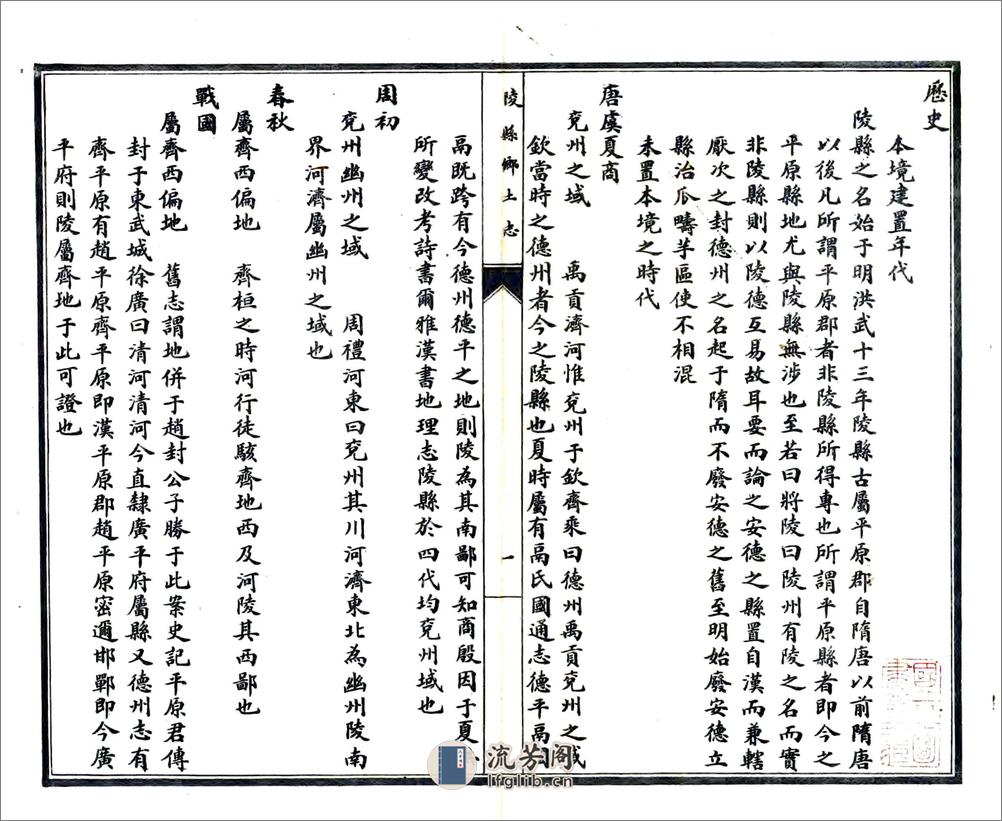 歷史
本境建置年代
陵縣之名始于明洪武十三年陵縣古屬平原郡自隋唐以前隋唐
以後凡所謂平原郡者非陵縣所得專也所謂平原縣者即今之
平原縣地尤與陵縣無涉也至若曰將陵曰陵州有陵之名而實
非陵縣則以陵德互易故耳要而論之安德之縣置自漢而兼轄
厭次之封德州之名起于隋而不廢安德之舊至明始廢安德立
縣治瓜疇芋區使不相混
未置本境之時代
唐虞夏商
兗州之域 禹貢濟河惟兗州于欽齊乘曰德州禹貢兗州之域
欽當時之德州者今之陵縣也夏時屬有鬲氏國通志德平鬲
陵縣鄉土志
一
鬲既跨有今德州德平之地則陵為其南鄙可知商殷因于夏
所變改考詩書爾雅漢書地理志陵縣於四代均兗州域也
周初
兗州幽州之域 周禮河東曰兗州其川河濟東北為幽州陵南
界河濟屬幽州之域也
春秋
屬齊西偏地 齊桓之時河行徒駭齊地西及河陵其西鄙也
戰國
屬齊西偏地 舊志謂地併于趙封公子勝于此案史記平原君傳
封于東武城徐廣曰清河清河今直隸廣平府屬縣又德州志有
齊平原有趙平原齊平原即漢平原郡趙平原密邇邯鄲即今廣
平府則陵屬齊地于此可證也
流芳阁
lfglib.cn